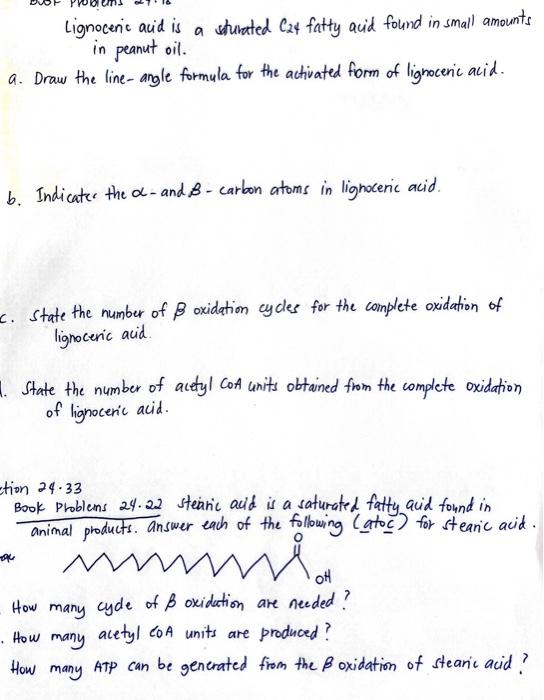 Problems 24.18
Lignoceric acid is a saturated C24 fatty acid found in small amounts
in peanut oil.
a. Draw the line-angle formula for the activated form of lignoceric acid.
b. Indicates the α- and β-carbon atoms in lignoceric acid.
c. State the number of β oxidation cycles for the complete oxidation of
lignoceric acid.
. State the number of acetyl CoA units obtained from the complete oxidation
of lignoceric acid.
ction 24.33
Book Problems 24.22 stearic acid is a saturated fatty acid found in
animal products. Answer each of the following (atoc) for stearic acid.
O
OH
How many cycle of β oxidation are needed?
. How many acetyl CoA units are produced?
How many ATP can be generated from the β oxidation of stearic acid?